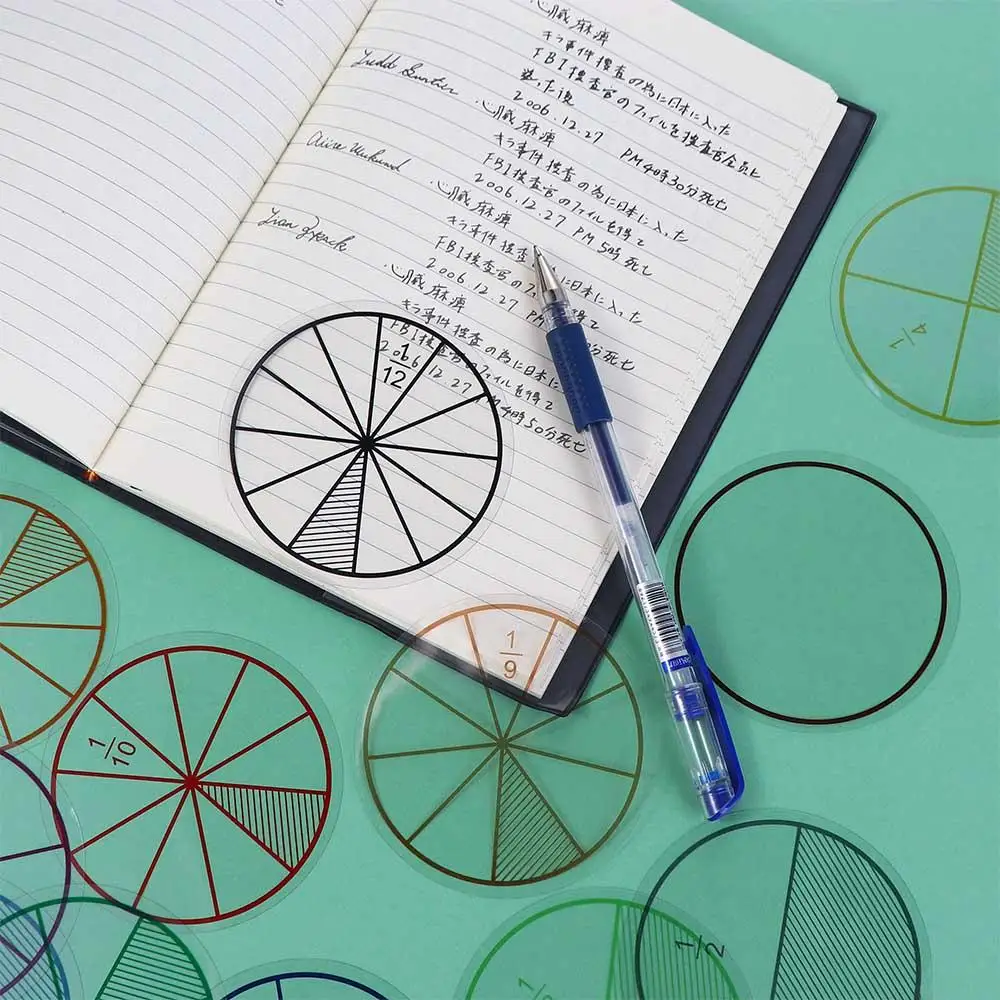 心臓麻痺
キラ事件捜査の為に日本に入った
FBI捜査官のファイルを捜査官全員に
た後
2006.12.27 PM4時30分死亡
心臓麻痺
キラ事件捜査の為に日本に入った
FBI捜査官のファイルを得て
2006.12.27 PM5時死亡
心臓麻痺
キラ事件捜査に日本に入った
FBI捜査官のファイルを得て
2006.12.27 分死亡
心臓麻痺
キラ事件捜査の為に日本に入
FBI捜査官のファイルを得て
2006.12.27 PM4時50分死亡
1/12
1/4
1/9
1/10
1/2